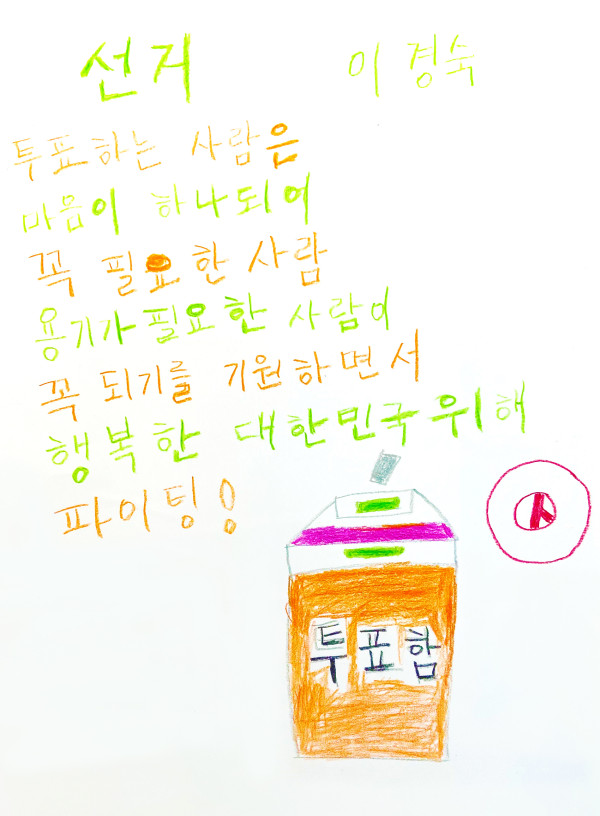 선거 이경숙
투표하는 사람은
마음이 하나되어
꼭 필요한 사람
용기가 필요한 사람이
꼭 되기를 기원하면서
행복한 대한민국 위해
파이팅!
투표함